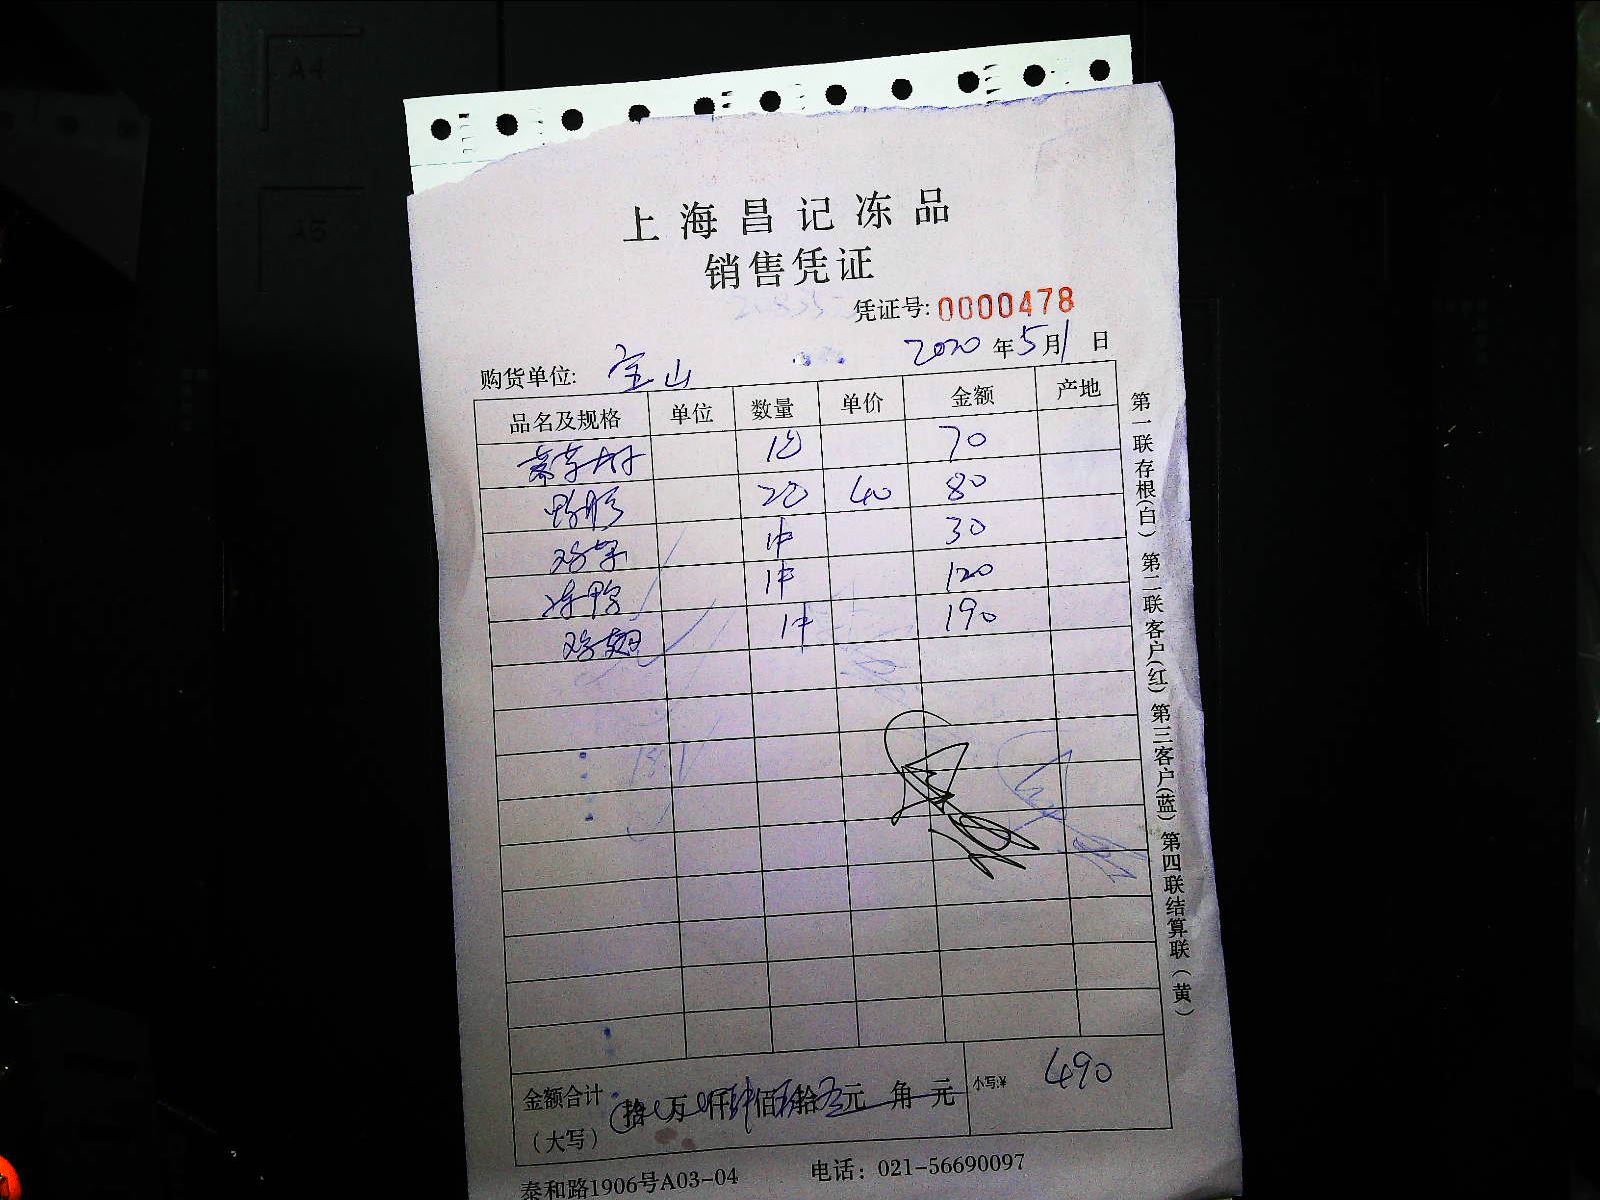 A4
A5
上海昌记冻品
销售凭证
凭证号: 0000478
2020 年 5 月 1 日
购货单位: 宝山
品名及规格 单位 数量 单价 金额 产地
70
40 80
鸡 1件 30
冻鸭 1件 120
鸡翅 1件 190
金额合计
(大写)
拾 万 仟 佰 拾 元 角 元
小写:¥ 490
泰和路1906号A03-04 电话: 021-56690097
第一联存根(白) 第二联客户(红) 第三客户(蓝) 第四联结算联(黄)